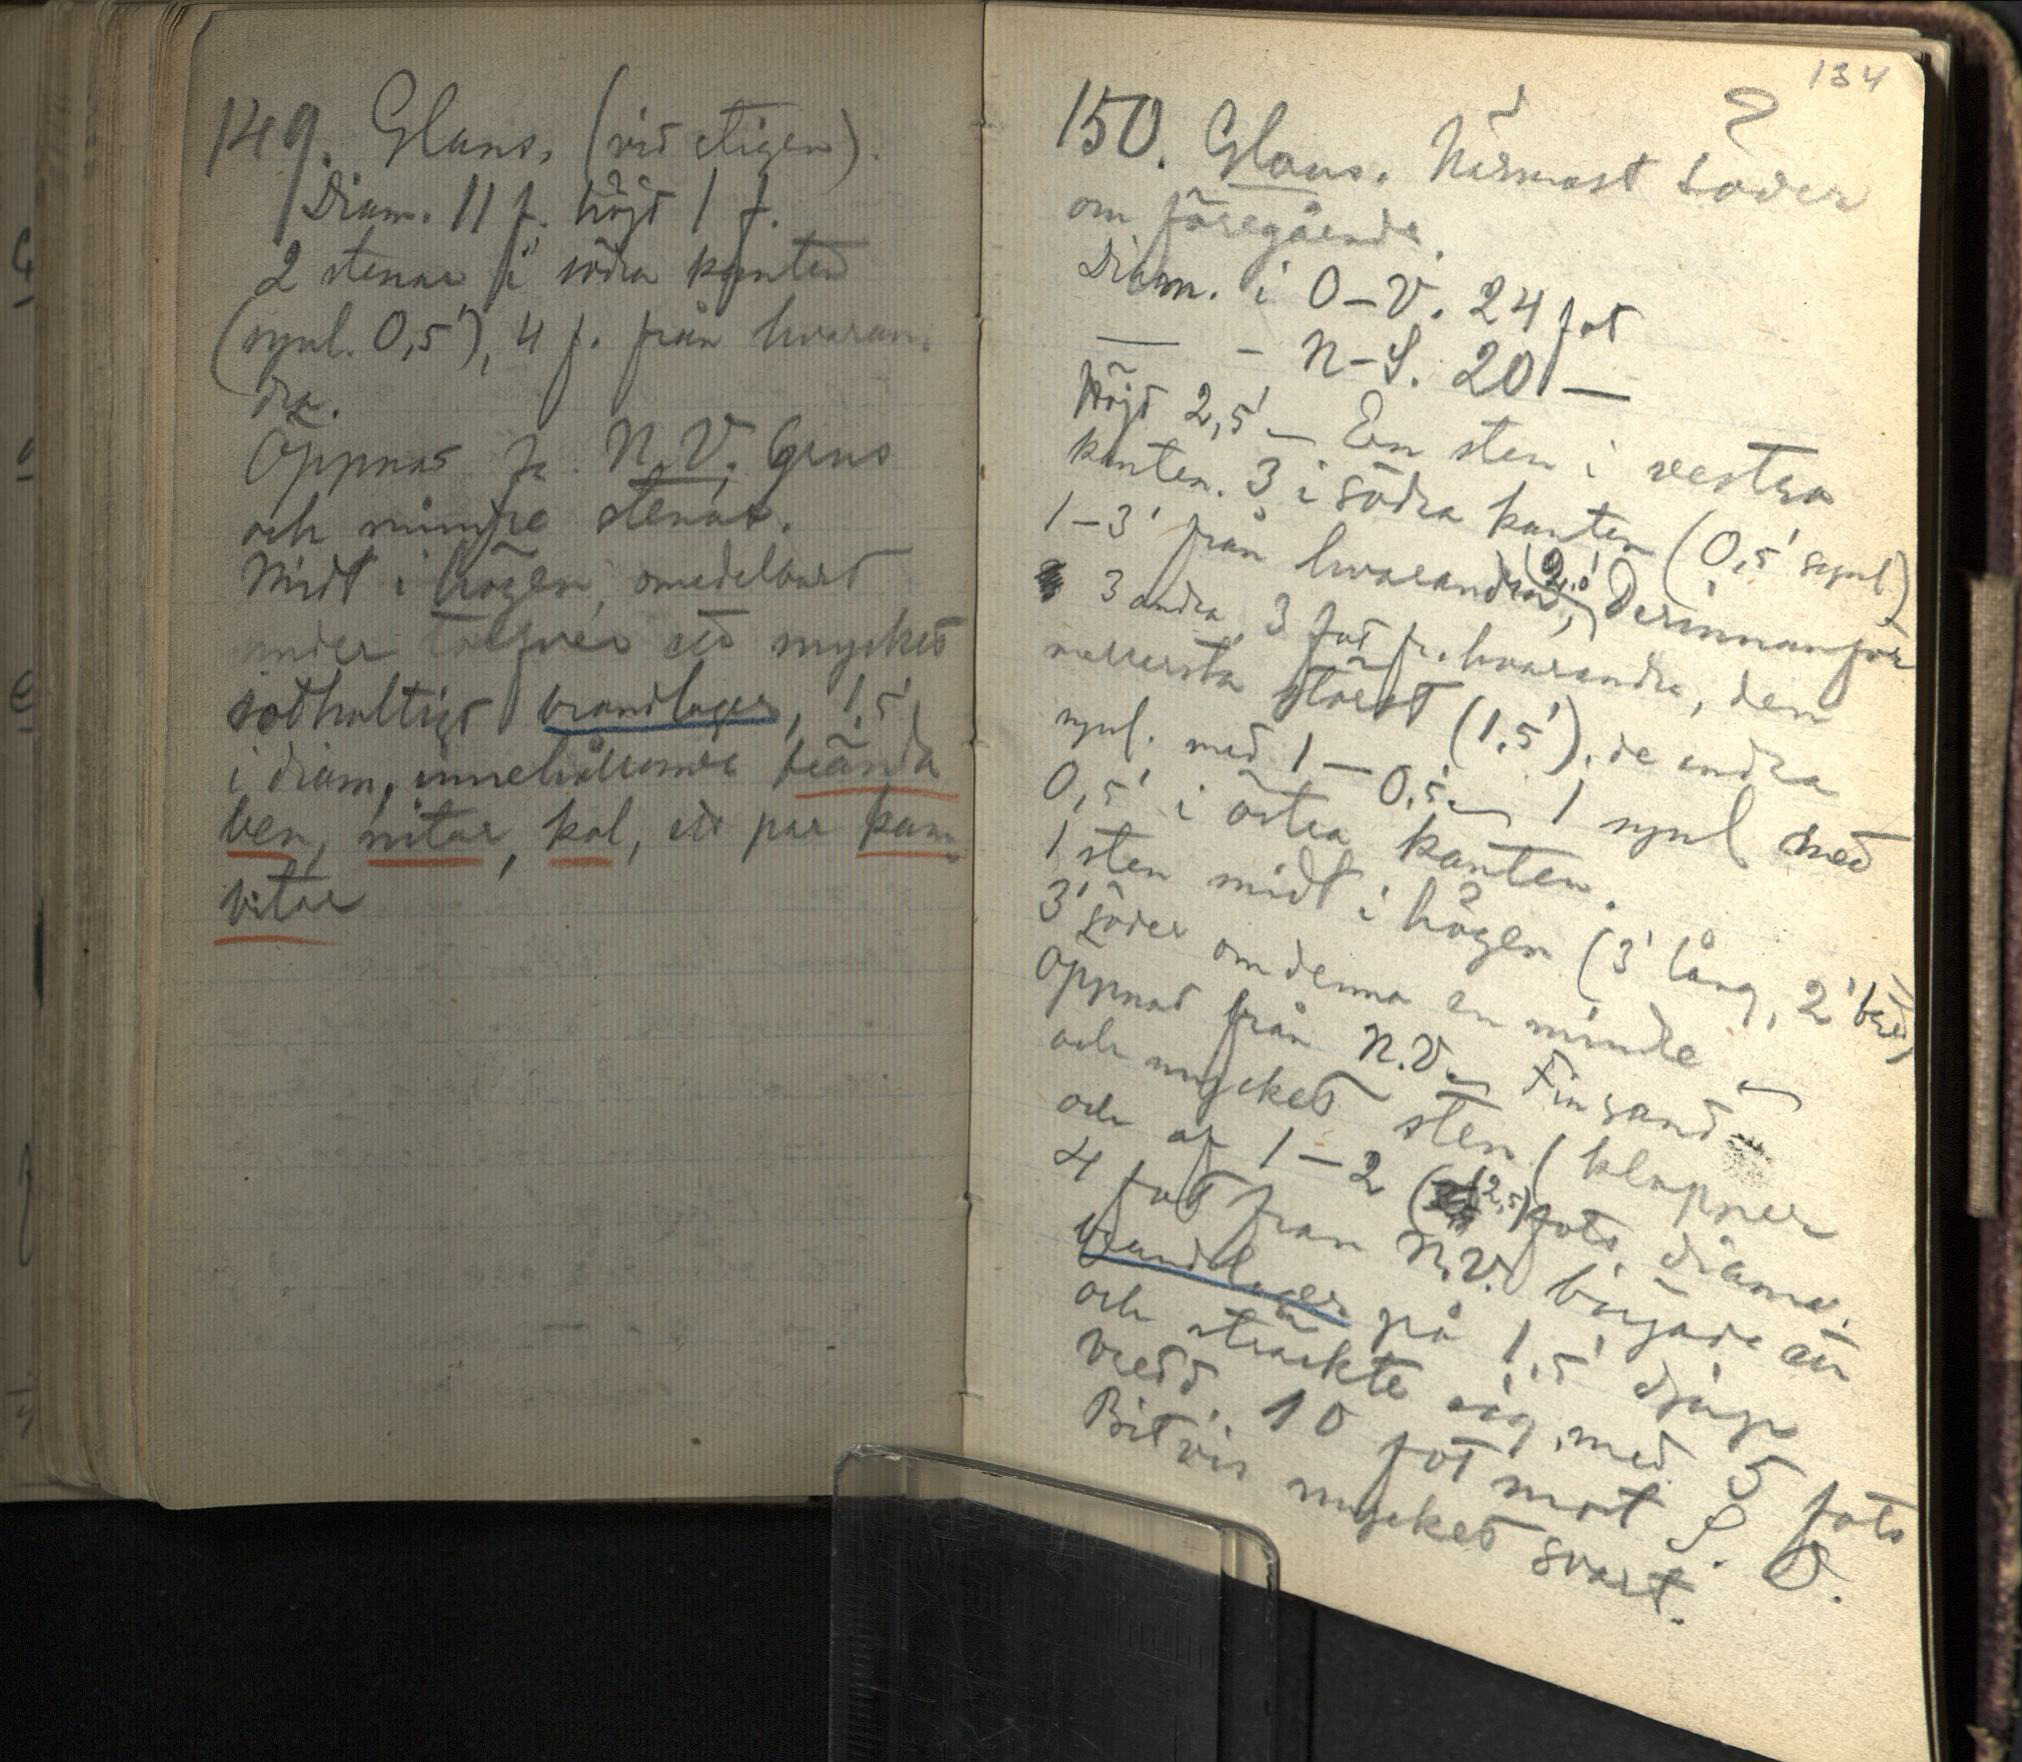 149. Glans. (vid stigen).
Diam. 11 f. höjd 1 f.
2 stenar i södra kanten
(synl. 0,5'), 4 f. från hvaran-
dra.
Öppnas fr. N.V. Grus
och mindre stenar.
Midt i högen, omedelbart
under torfven ett mycket
sothaltigt brandlager, 1,5'
i diam, innehållande brända
ben, nitar, kol, ett par kam
bitar
134
150. Glans. Närmast söder
om föregående.
Diam. i O–V. 24 fot
— – N–S. 20 —
Höjd 2,5' — En sten i vestra
kanten. 3 i södra kanten (0,5' synl.)
1–3' från hvarandra, Derinnanför
3 andra 3 fot fr. hvarandra, den
mellersta störst (1,5'), de andra
synl. med 1 — 0,5. — 1 synl med
0,5' i östra kanten.
1 sten midt i högen (3' lång, 2' bred)
3' söder om denna en mindre —
Öppnad från N.V. — Fin sand
och mycket sten (klapper
och af 1–2 (2,5) fots diam.
4 fot från N.V. började ett
brandlager på 1,5' djup
och sträckte sig med 5 fots
bredd. 10 fot mot S. O.
Bitvis mycket svart.